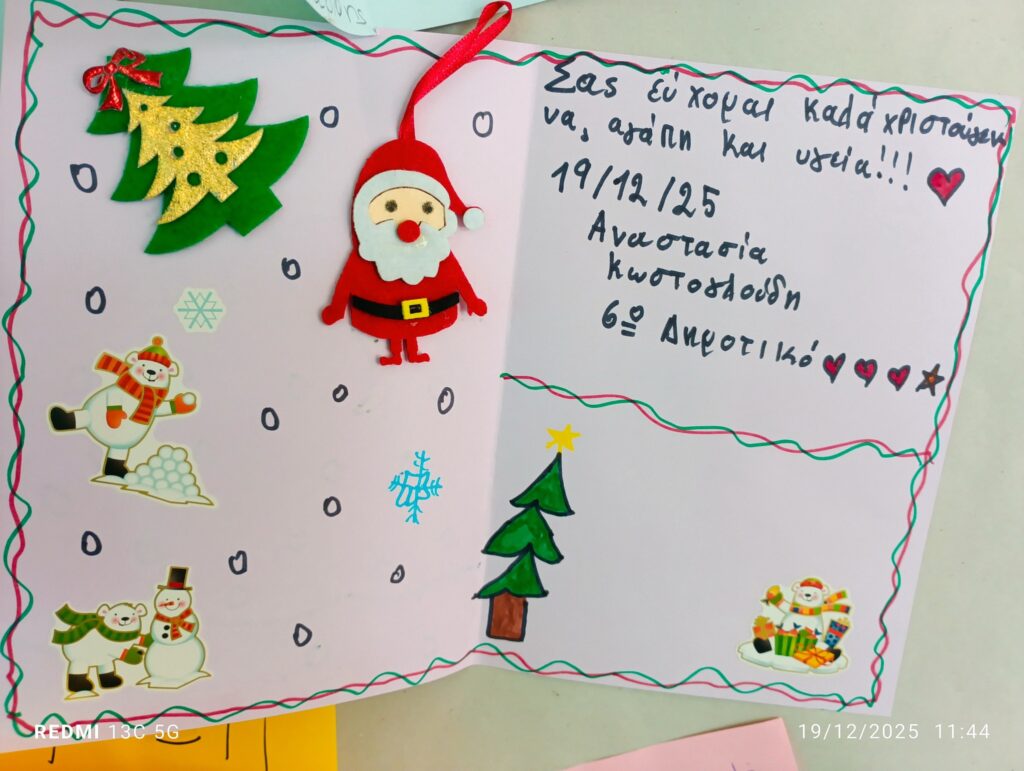 Σας εύχομαι καλά χριστούγεν
να, αγάπη και υγεία!!!
19/12/25
Αναστασία
Κωστογλούδη
6º Δημοτικό
REDMI 13C 5G
19/12/2025 11:44